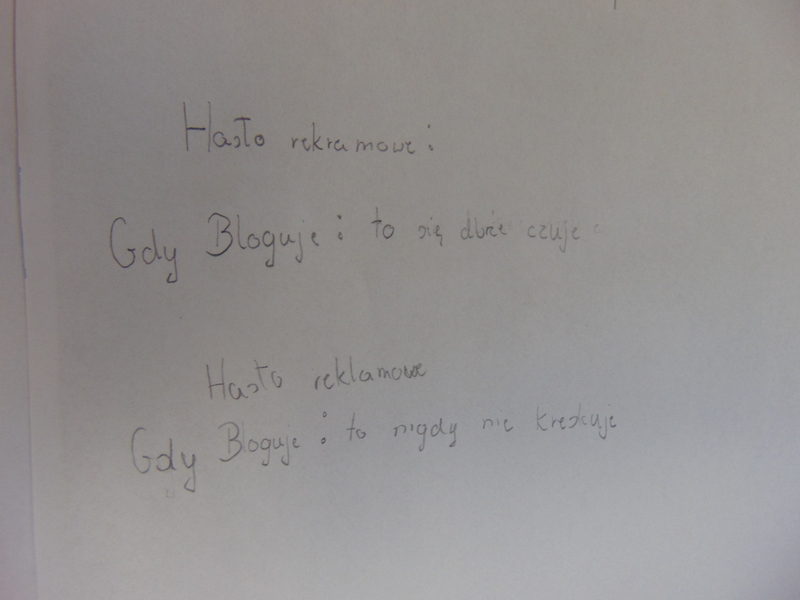 Hasło rekramowe:
Gdy Bloguje : to się dbrze czuje
Hasło reklamowe
Gdy Bloguje : to nigdy nie kreskuje